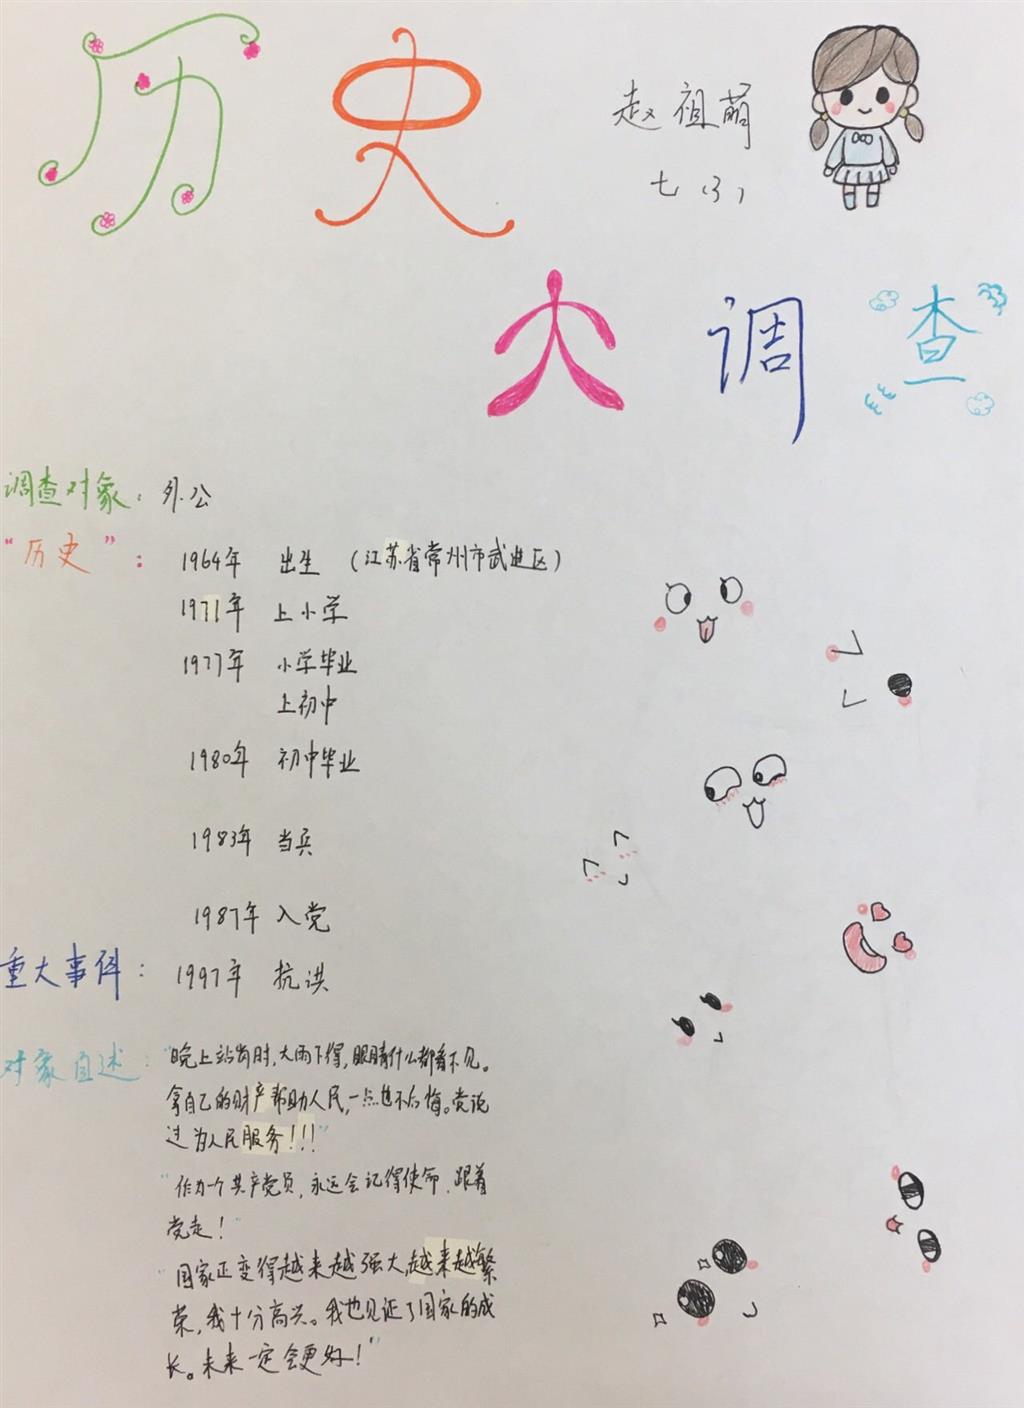 历史
赵祖萌
七(3)
大调查
调查对象：外公
“历史”：1964年 出生 (江苏省常州市武进区)
1971年 上小学
1977年 小学毕业
上初中
1980年 初中毕业
1983年 当兵
1987年 入党
重大事件：1997年 抗洪
对象自述："晚上站岗时，大雨下得，眼睛什么都看不见。
拿自己的财产帮助人民，一点也不后悔。党说
过为人民服务！！！"
"作为一个共产党员，永远会记得使命，跟着
党走！"
"国家正变得越来越强大，越来越繁
荣，我十分高兴。我也见证了国家的成
长。未来一定会更好！"